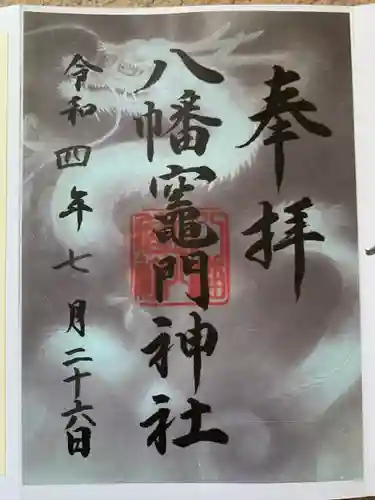 奉拝
八幡竈門神社
令和四年七月二十六日